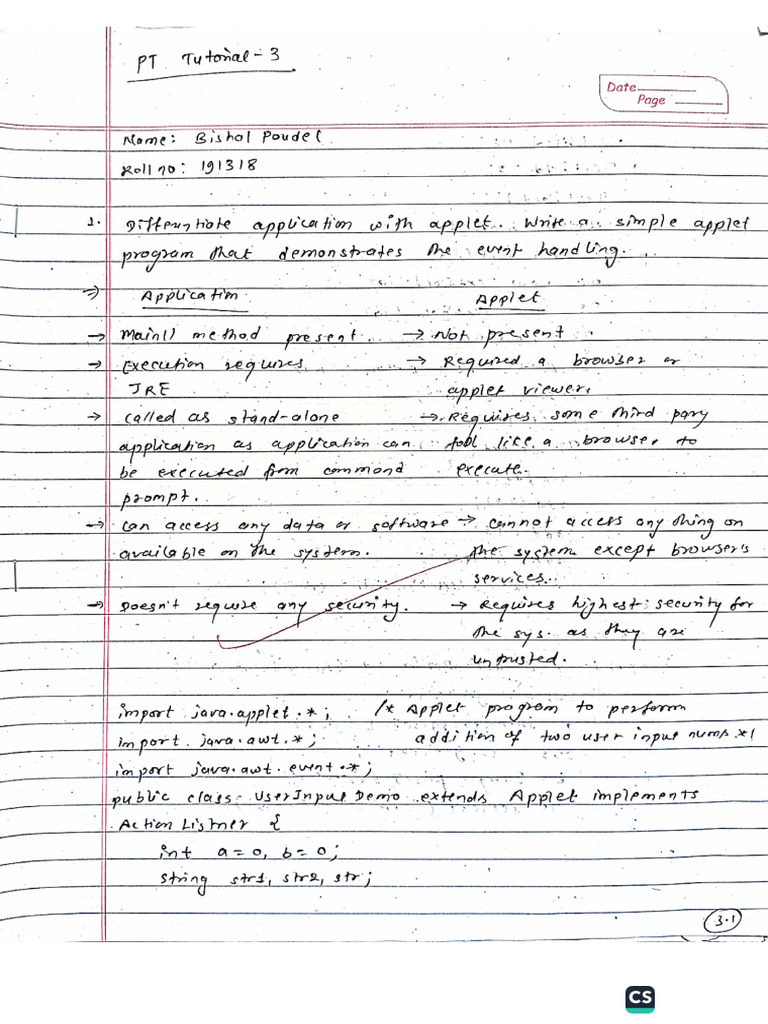 PT Tutorial - 3
Date
Page
Name: Bishal Poudel
Roll no: 191318
1. Differentiate application with applet. Write a simple applet
program that demonstrates the event handling.
=> Application Applet
→ Main() method present. → Not present.
→ Execution requires → Required a browser or
JRE applet viewer.
→ called as stand-alone → Requires some third pary
application as application can tool like a browser to
be executed from command execute.
prompt.
→ can access any data or software → cannot access any thing on
available on the system. the system except browser's
services.
→ Doesn't require any security. → Requires highest security for
the sys. as they are
untrusted.
import java.applet.*; /* Applet program to perform
import java.awt.*; addition of two user input nums */
import java.awt.event.*;
public class UserInputDemo extends Applet implements
Action Listner {
int a=0, b=0;
string str1, str2, str;
3.1
CS